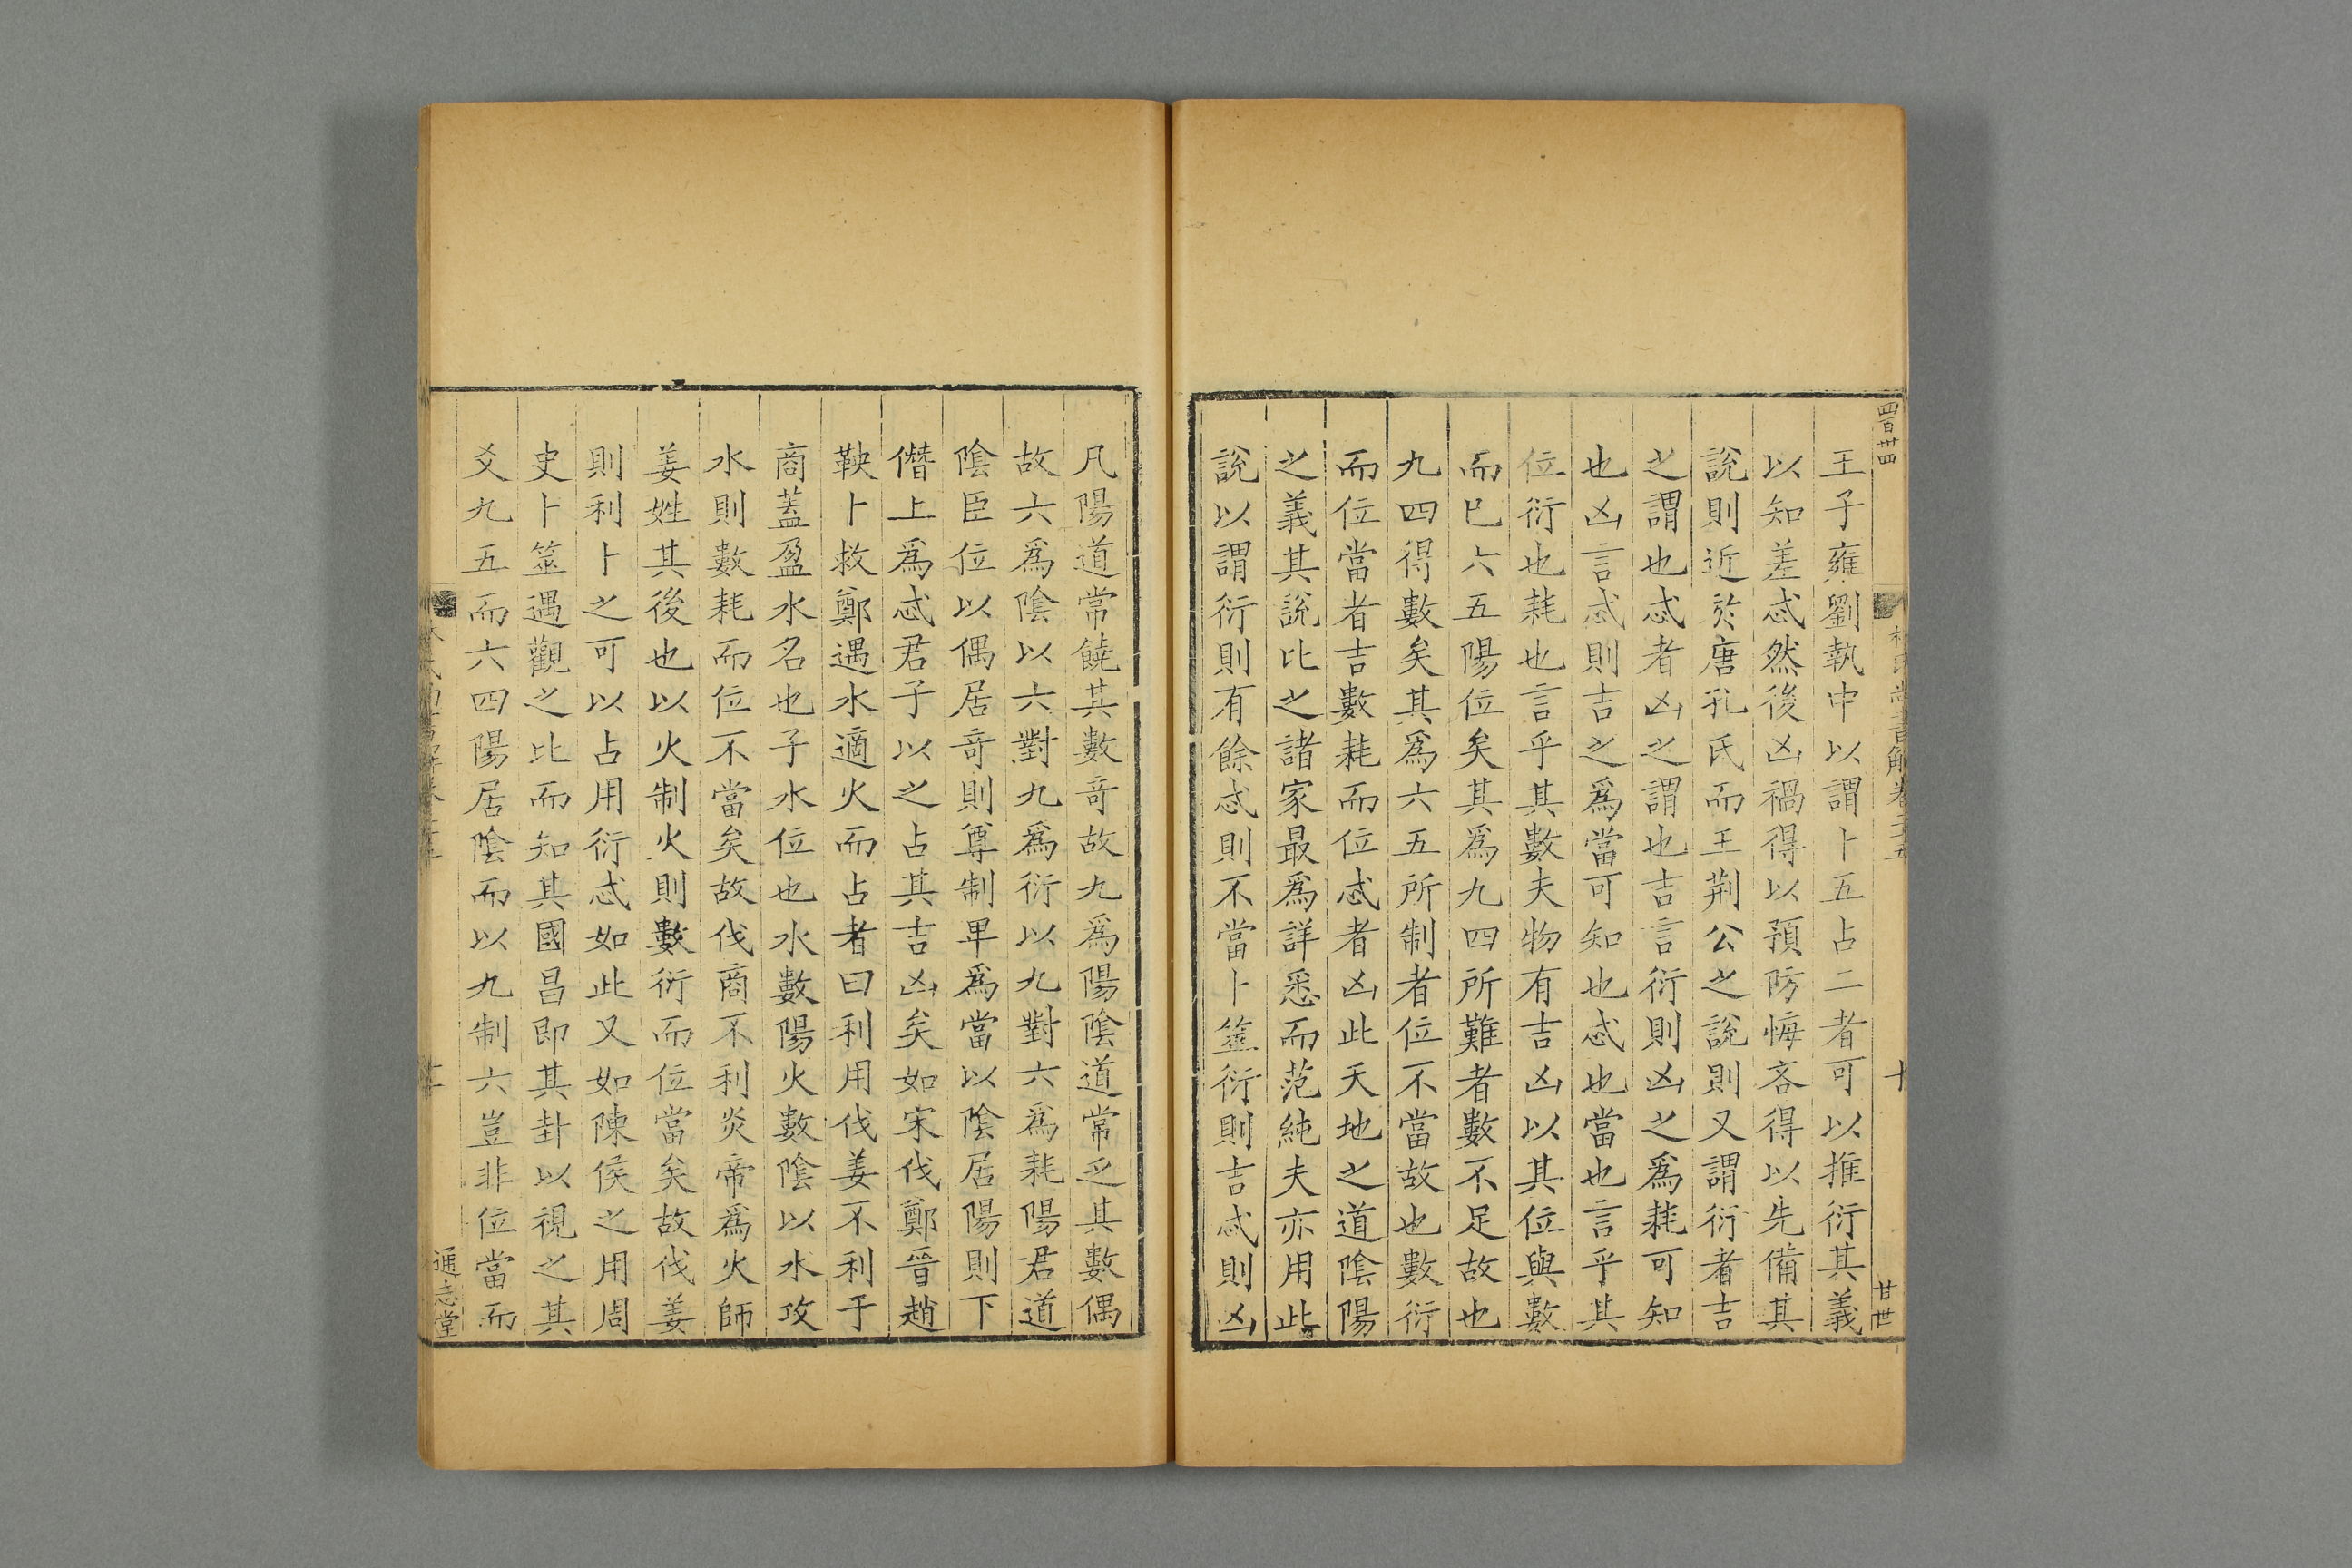 四百廿四
林氏尚書解卷二十五
十
甘世
王子雍劉執中以謂卜五占二者可以推衍其義
以知差忒然後凶禍得以預防悔吝得以先備其
說則近於唐孔氏而王荆公之說則又謂衍者吉
之謂也忒者凶之謂也吉言衍則凶之爲耗可知
也凶言忒則吉之爲當可知也忒也當也言乎其
位衍也耗也言乎其數夫物有吉凶以其位與數
而已六五陽位矣其爲九四所難者數不足故也
九四得數矣其爲六五所制者位不當故也數衍
而位當者吉數耗而位忒者凶此天地之道陰陽
之義其說比之諸家最爲詳悉而范純夫亦用此
說以謂衍則有餘忒則不當卜筮衍則吉忒則凶
凡陽道常饒其數奇故九爲陽陰道常乏其數偶
故六爲陰以六對九爲衍以九對六爲耗陽君道
陰臣位以偶居奇則尊制卑爲當以陰居陽則下
僭上爲忒君子以之占其吉凶矣如宋伐鄭晉趙
鞅卜救鄭遇水適火而占者曰利用伐姜不利于
商蓋盈水名也子水位也水數陽火數陰以水攻
水則數耗而位不當矣故伐商不利炎帝爲火師
姜姓其後也以火制火則數衍而位當矣故伐姜
則利卜之可以占用衍忒如此又如陳侯之用周
史卜筮遇觀之比而知其國昌即其卦以視之其
爻九五而六四陽居陰而以九制六豈非位當而
通志堂